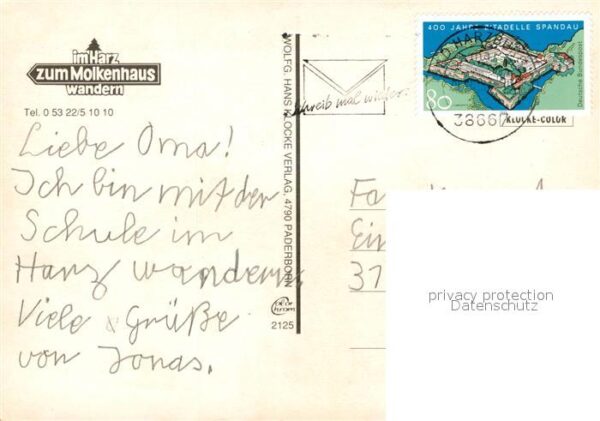 im Harz
zum Molkenhaus
wandern
Tel. 0 53 22/5 10 10
Liebe Oma!
Ich bin mit der
Schule im
Harz wandern
Viele Grüße
von Jonas.
WOLFG. HANS KLOCKE VERLAG, 4790 PADERBORN
2125
Schreib mal wieder!
400 JAHRE ZITADELLE SPANDAU
Deutsche Bundespost
80
38667
KLOCKE-COLOR
37
privacy protection
Datenschutz